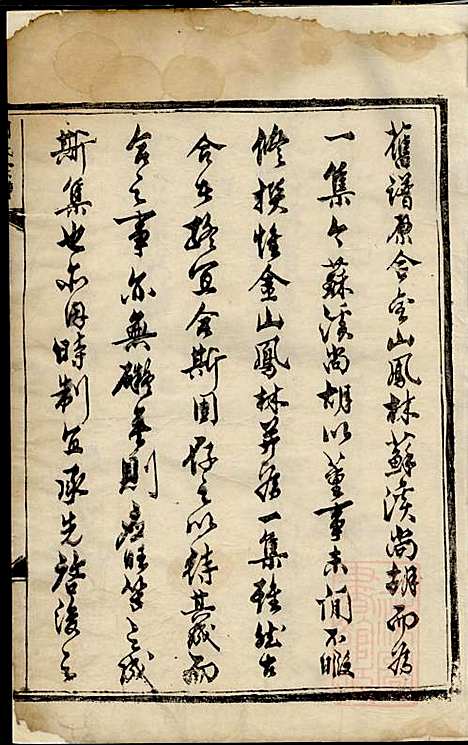 舊譜原合金山鳳林蘇溪尚胡而為
一集今蘇溪尚胡以董事未閒不暇
修揆惟金山鳳林并為一集雖然古
合者終宜合斯圖存之以待其成而
合之事亦無礙焉則應旺公之成
斯集也亦因時制宜承先啓後之